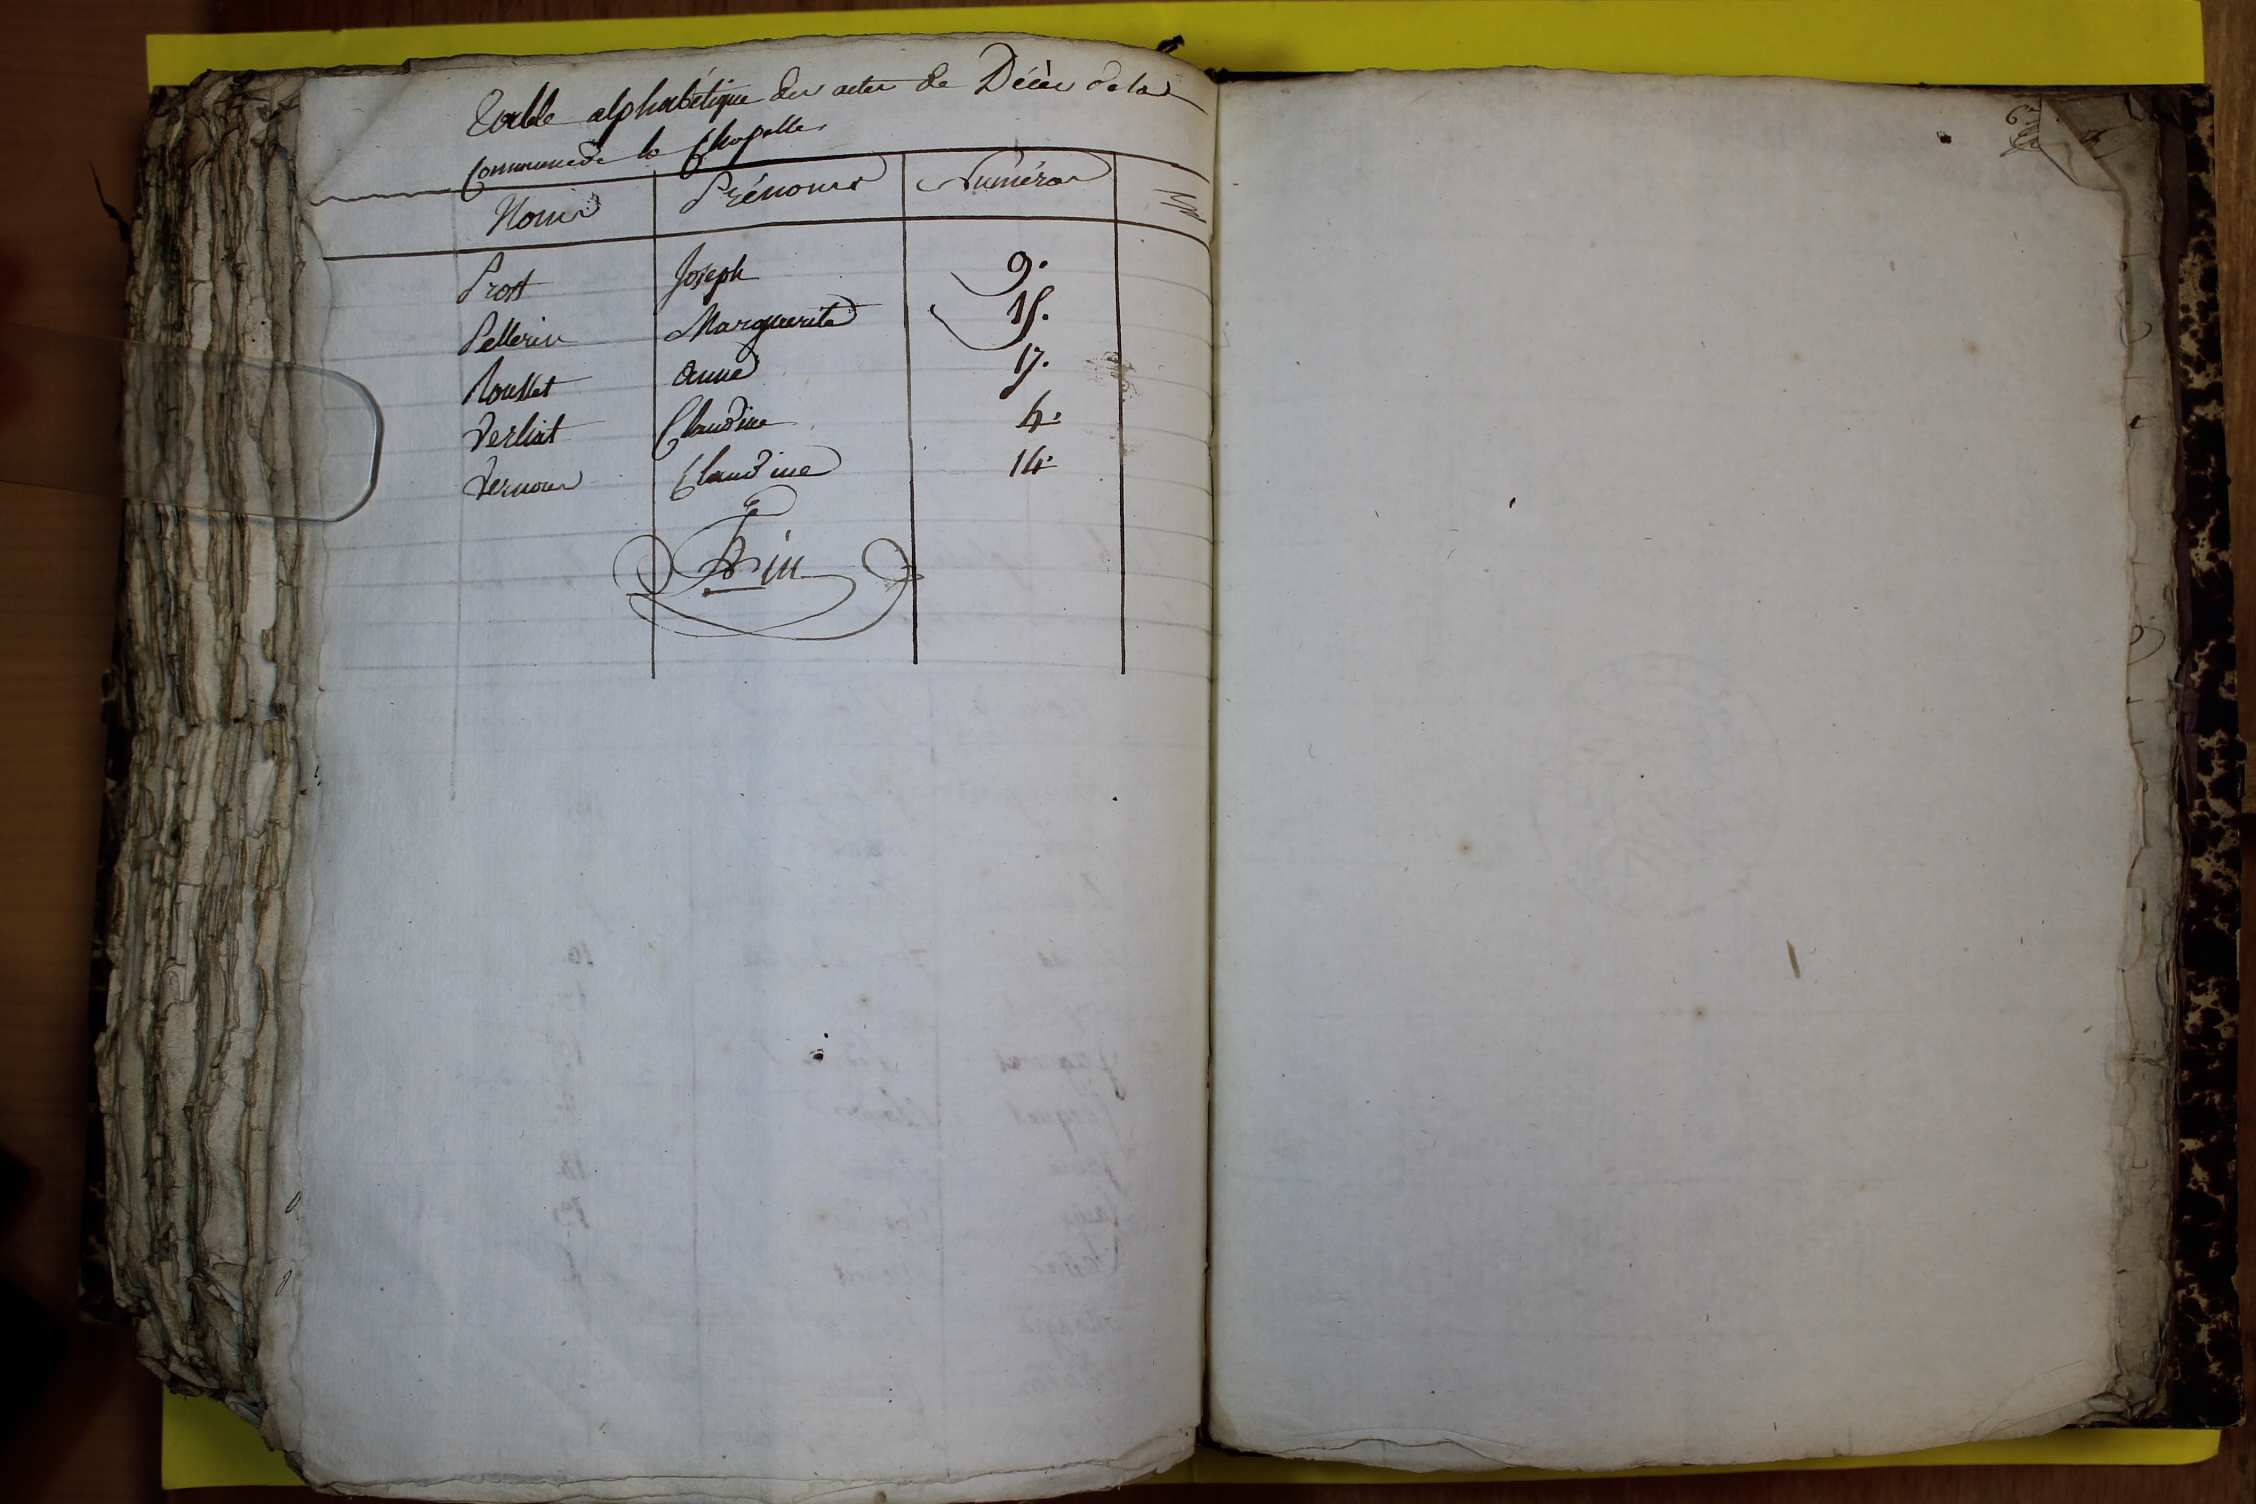 Table alphabétique des actes de Décès de la
Commune de la Chapelle
Noms Prénoms Numéros
Prost Joseph 9.
Pellerin Marguerite 15.
Rousset anne 17.
Verliat Claudine 4.
Vernoux Claudine 14.
fin